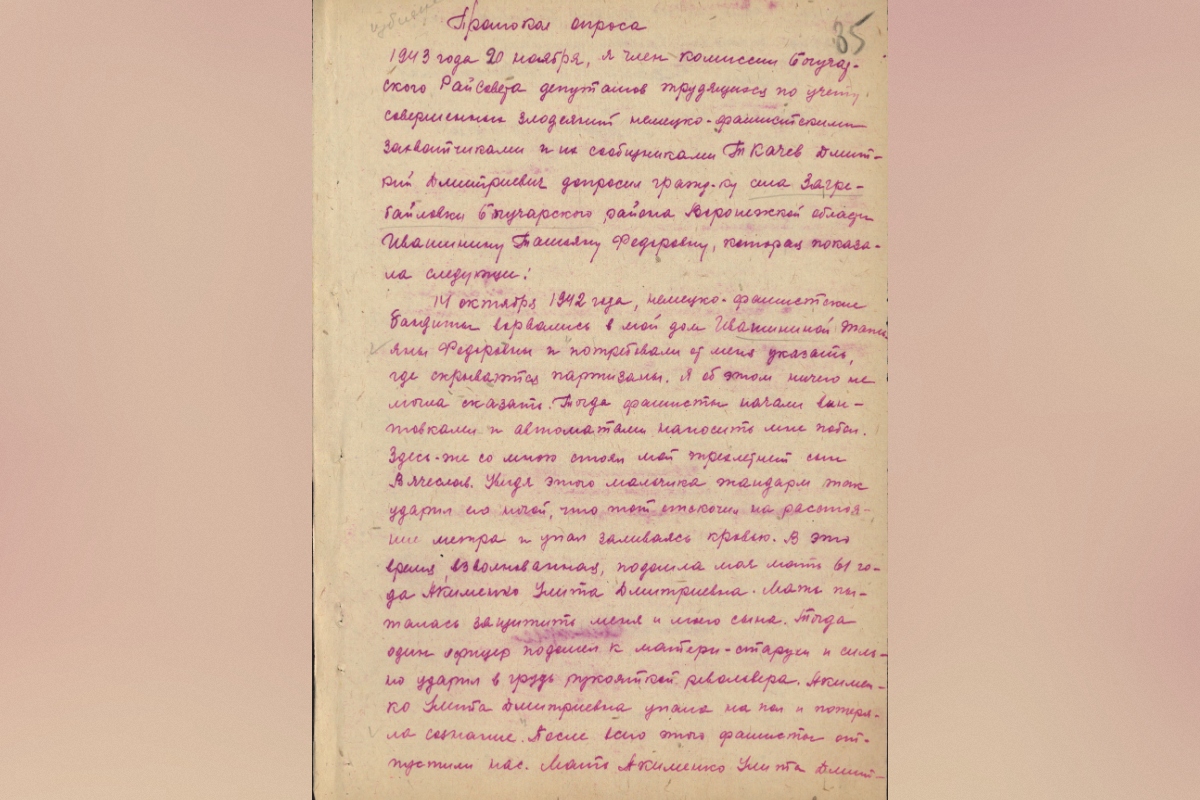 Протокол опроса
35
1943 года 20 ноября, я член комиссии Богучар-
ского Райсовета депутатов трудящихся по учету
совершенных злодеяний немецко-фашистскими
захватчиками и их сообщниками Ткачев Дмит-
рий Дмитриевич допросил гражд-ку села Загре-
байловки Богучарского района Воронежской области
Ивашинину Татьяну Федоровну, которая показа-
ла следующее:
14 октября 1942 года, немецко-фашистские
бандиты ворвались в мой дом Ивашининой Тать-
яны Федоровны и потребовали от меня указать,
где скрываются партизаны. Я об этом ничего не
могла сказать. Тогда фашисты начали вин-
товками и автоматами наносить мне побои.
Здесь-же со мною стоял мой трехлетний сын
Вячеслав. Видя этого мальчика жандарм так
ударил его ногой, что тот отскочил на расстоя-
ние метра и упал заливаясь кровью. В это
время, взволнованная, подошла моя мать 61 го-
да Акименко Улита Дмитриевна. Мать пы-
талась защитить меня и моего сына. Тогда
один офицер подошел к матери-старухе и силь-
но ударил в грудь рукояткой револьвера. Акимен-
ко Улита Дмитриевна упала на пол и потеря-
ла сознание. После всего этого фашисты от-
пустили нас. Мать Акименко Улита Дмит-